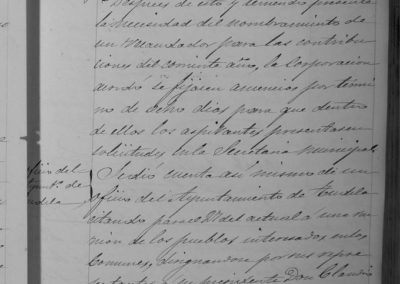 Despues de esto y teniendo presente
la necesidad del nombramiento de
un recaudador para las contribu-
ciones del corriente año, la Corporacion
acordó se fijasen anuncios por termi-
no de ocho dias para que dentro
de ellos los aspirantes presentasen
solicitudes en la Secretaria municipal.
Se dió cuenta asi mismo de un
oficio del Ayuntamiento de Tudela
citando para el del actual a una reu-
nion de los pueblos interesados en los
Comunes, dignandose por sus repre-
sentantes a su presidente Don Claudio
Oficio del
Ayunt.º de
Tudela